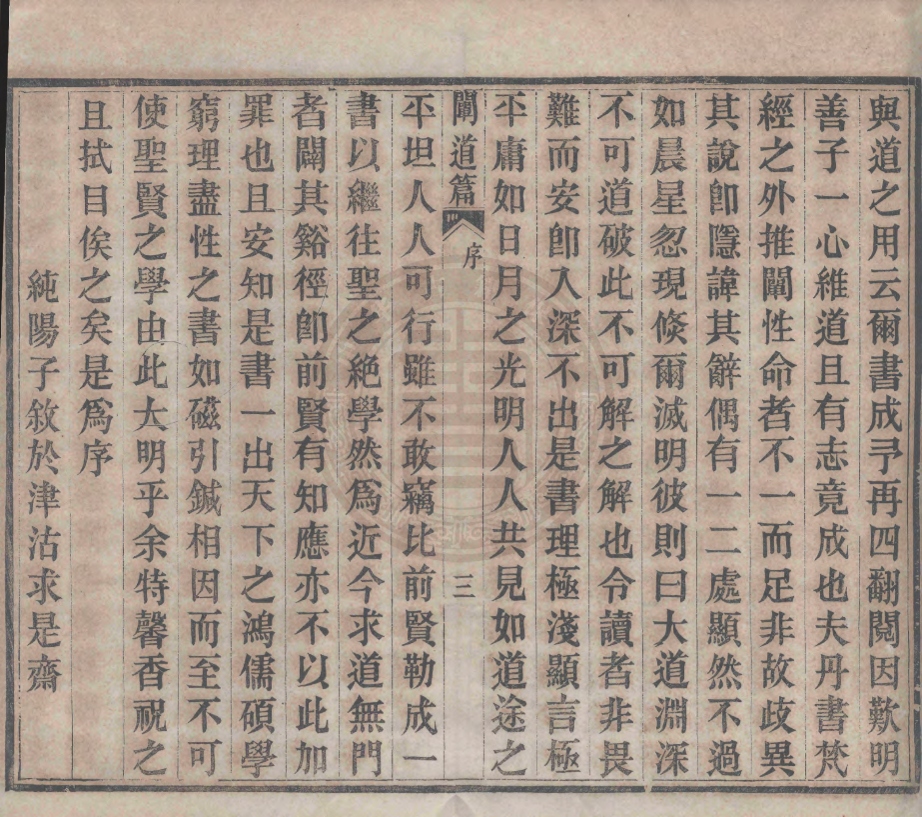 與道之用云爾書成予再四翻閱因歎明
善子一心維道且有志竟成也夫丹書梵
經之外推闡性命者不一而足非故歧異
其說卽隱諱其辭偶有一二處顯然不過
如晨星忽現倏爾滅明彼則曰大道淵深
不可道破此不可解之解也令讀者非畏
難而安卽入深不出是書理極淺顯言極
平庸如日月之光明人人共見如道途之
闡道篇 序 三
平坦人人可行雖不敢竊比前賢勒成一
書以繼往聖之絕學然爲近今求道無門
者闢其谿徑卽前賢有知應亦不以此加
罪也且安知是書一出天下之鴻儒碩學
窮理盡性之書如磁引鍼相因而至不可
使聖賢之學由此大明乎余特馨香祝之
且拭目俟之矣是爲序
純陽子敘於津沽求是齋